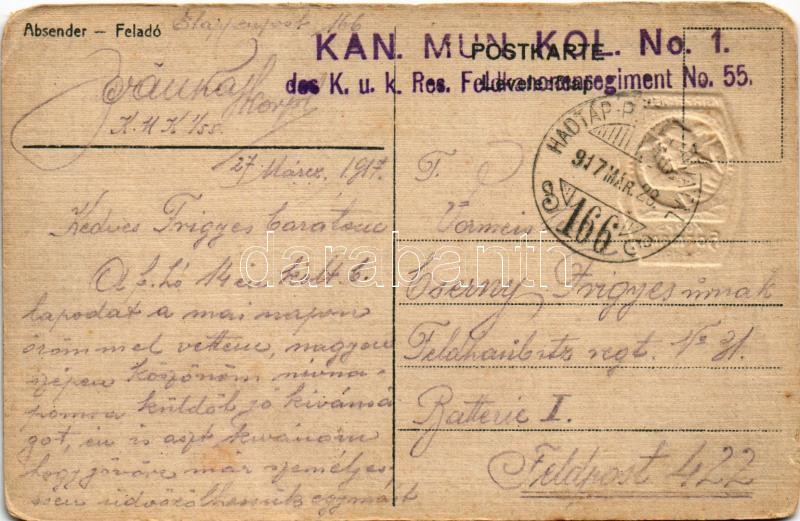 Absender — Feladó
Etappenpost 166
KAN. MUN. KOL. No. 1.
des K. u. k. Res. Feldkanonenregiment No. 55.
POSTKARTE
Levelezőlap
K. M. K. 1/55.
HADTÁP-P
917 MÁR. 28.
166
27 Márcz. 1917.
Kedves Frigyes barátom
A f. hó 14 én kelt b.
lapodat a mai napon
örömmel vettem, nagyon
szépen köszönöm névna-
pomra küldöt jó kivánsá
got, én is aszt kivánom
hogy jövőre már személyes-
sen üdvözölhessük egymást
T.
Vormeis
Cserny Frigyes úrnak
Feldhaubitz regt. No 31.
Batterie I.
Feldpost 422
darabanth